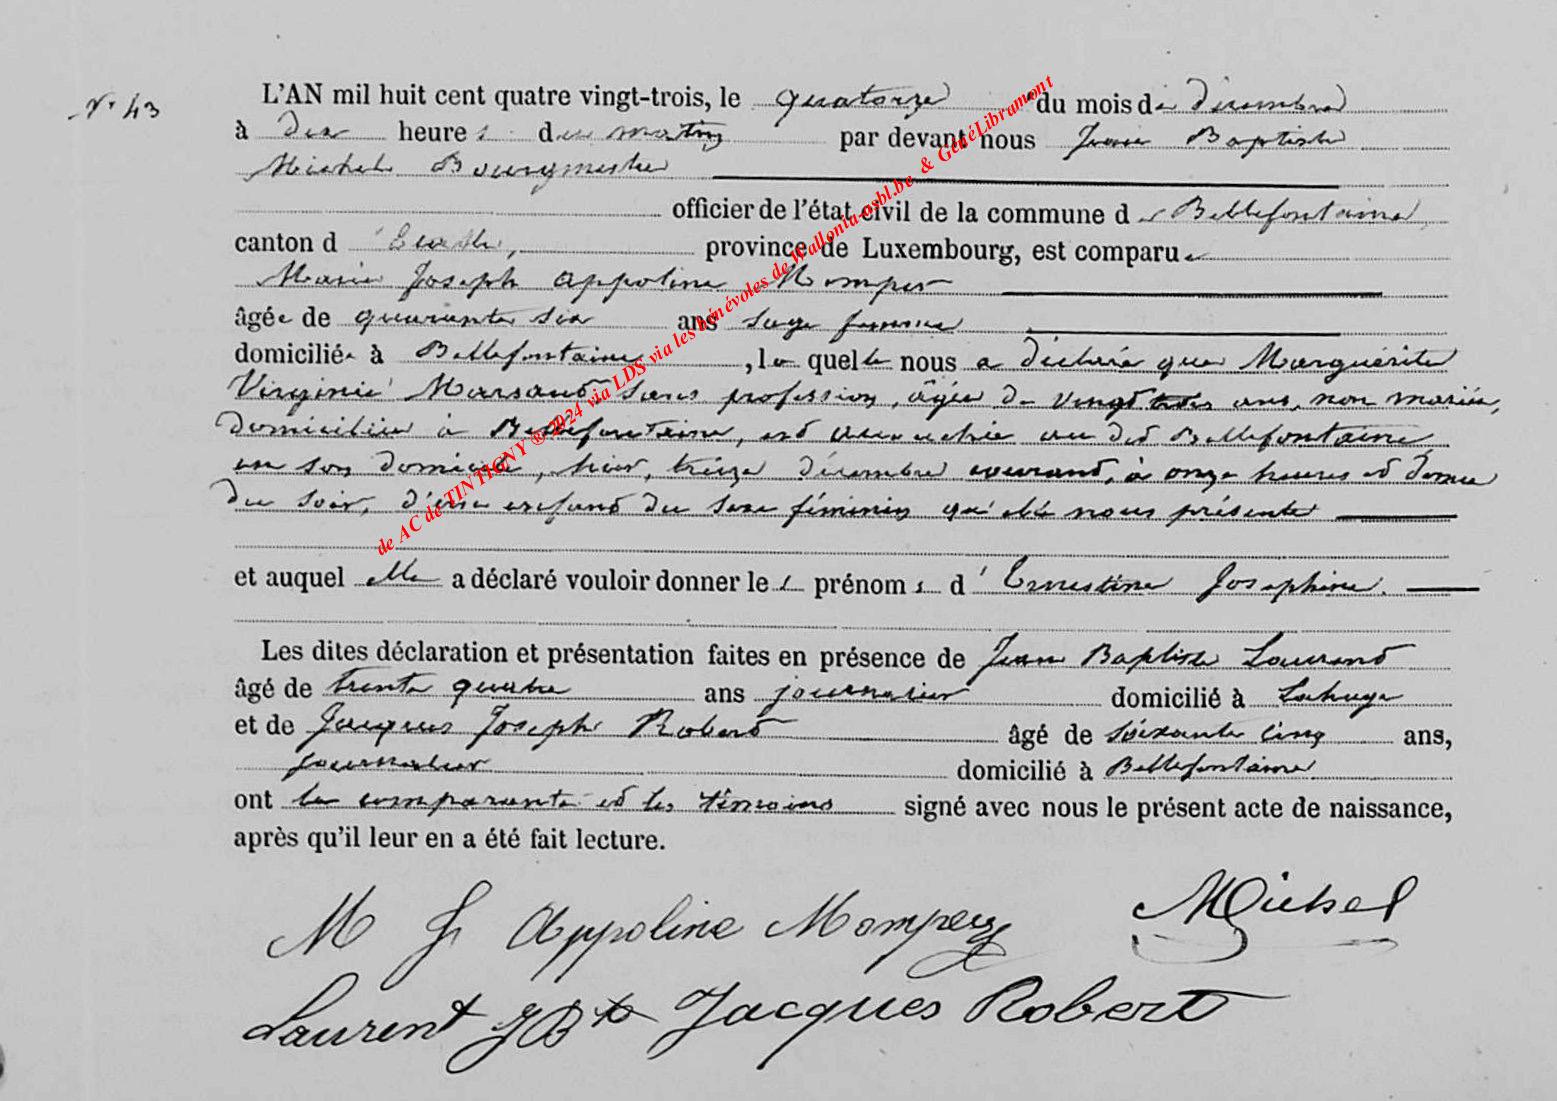 N° 43
L'AN mil huit cent quatre vingt-trois, le quatorze du mois de décembre
à dix heures du matin par devant nous Jean Baptiste
Michel Bourgmestre
officier de l'état civil de la commune de Bellefontaine
canton d'Etalle, province de Luxembourg, est comparue
Marie Joseph Appoline Momper
âgée de quarante six ans sage femme
domiciliée à Bellefontaine, laquelle nous a déclaré que Marguérite
Virginie Marsand, sans profession, âgée de vingt trois ans, non mariée,
domiciliée à Bellefontaine, est accouchée au dit Bellefontaine
en son domicile, hier, treize décembre courant, à onze heures et demie
du soir, d'un enfant du sexe féminin qu'elle nous présente
et auquel elle a déclaré vouloir donner les prénoms d'Ernestine Josephine.
Les dites déclaration et présentation faites en présence de Jean Baptiste Laurent
âgé de trente quatre ans journalier domicilié à Lahage
et de Jacques Joseph Robert âgé de soixante cinq ans,
journalier domicilié à Bellefontaine
ont la comparante et les témoins signé avec nous le présent acte de naissance,
après qu'il leur en a été fait lecture.
M J Appoline Momper Michel
Laurent JBte Jacques Robert
de AC de TINTIGNY ® 2024 via LDS via les bénévoles de Wallonia-asbl.be & GénéLibramont